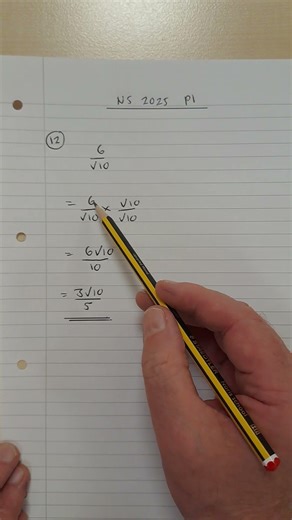 N5 2025 P1
12
6/√10
= 6/√10 × √10/√10
= 6√10/10
= 3√10/5